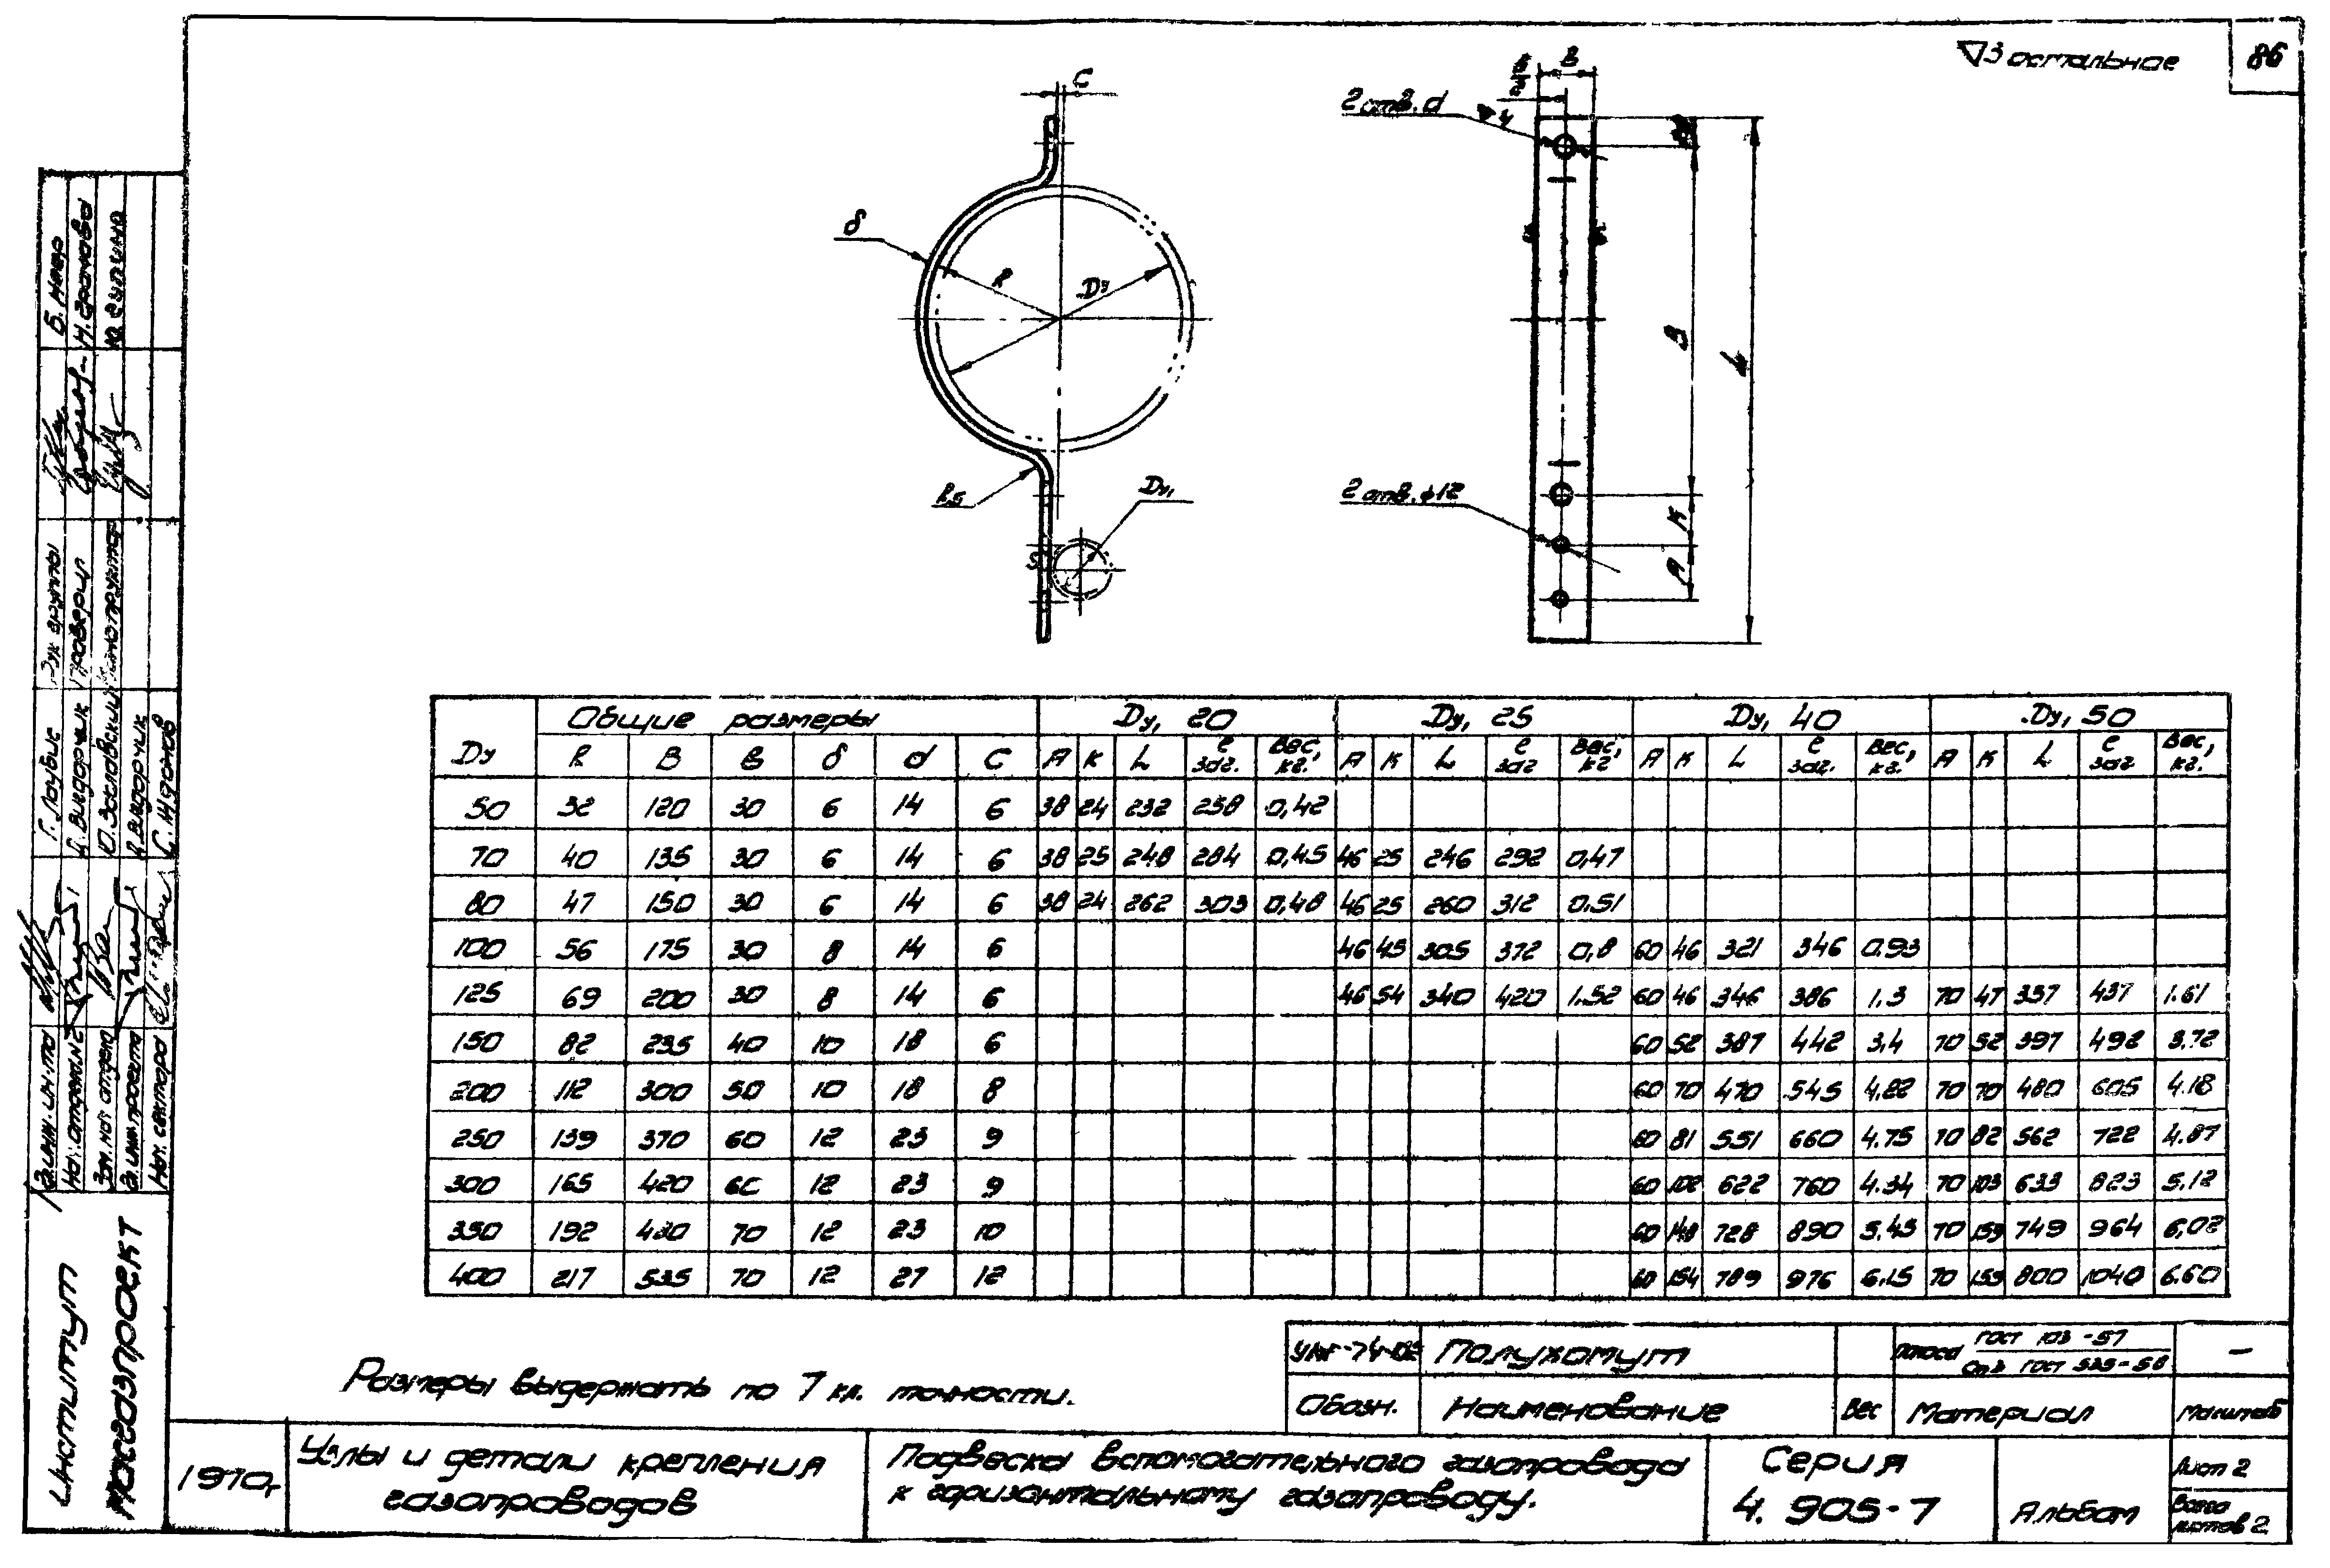 ▽3 остальное
86
C
δ
R
Dу
R5
Dу₁
S
2 отв. d
▽4
B
L
K
A
2 отв. ф12
Dу Общие размеры Dу₁ 20 Dу₁ 25 Dу₁ 40 Dу₁ 50
R B в δ d C A K L e заг. Вес, кг. A K L e заг Вес, кг A K L e заг. Вес, кг. A K L e заг. Вес, кг.
50 32 120 30 6 14 6 38 24 232 258 0,42
70 40 135 30 6 14 6 38 25 248 284 0,45 46 25 246 292 0,47
80 47 150 30 6 14 6 38 24 262 303 0,48 46 25 260 312 0.51
100 56 175 30 8 14 6 46 45 305 372 0,8 60 46 321 346 0.93
125 69 200 30 8 14 6 46 54 340 420 1.52 60 46 346 386 1.3 70 47 357 437 1.61
150 82 235 40 10 18 6 60 52 387 442 3,4 70 52 397 498 3.72
200 112 300 50 10 18 8 60 70 470 545 4,22 70 70 480 605 4.18
250 139 370 60 12 23 9 60 81 551 660 4.75 70 82 562 722 4.87
300 165 420 60 12 23 9 60 102 622 760 4.34 70 103 633 823 5.12
350 192 480 70 12 23 10 60 148 728 890 5.45 70 159 749 964 6,02
400 217 535 70 12 27 12 60 154 789 976 6.15 70 155 800 1040 6.60
Размеры выдержать по 7 кл. точности.
УКГ-74-02 Полухомут Полоса ГОСТ 103-57
Ст 3 ГОСТ 535-58 —
Обозн. Наименование Вес Материал Масштаб
1970г. Узлы и детали крепления газопроводов
Подвеска вспомогательного газопровода
к горизонтальному газопроводу.
Серия
4. 905-7
Альбом
Лист 2
Всего
листов 2
Институт
Мосгазпроект
Гл. инж. ин-та Г. Лаувис Рук группы
Нач. отдела №2 А. Вигдорчик Проверил
Зам. нач отдела Ю. Заславский Конструктор
Гл. инж проекта А. Вигдорчик
Нач. сектора